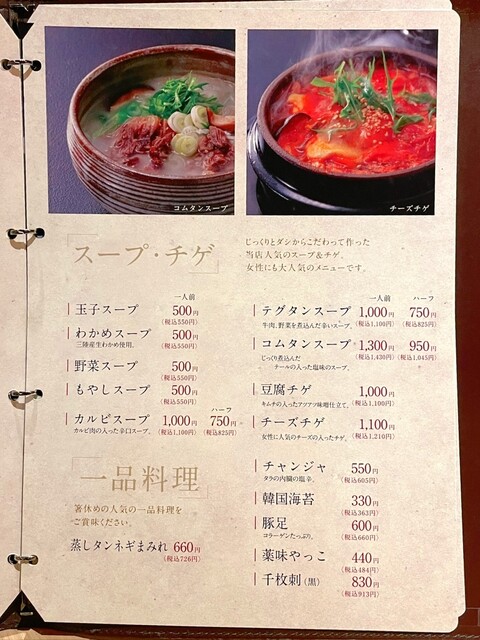 コムタンスープ
チーズチゲ
「スープ・チゲ」
じっくりとダシからこだわって作った
当店人気のスープ&チゲ。
女性にも大人気のメニューです。
一人前
玉子スープ 500円
(税込550円)
わかめスープ 500円
三陸産生わかめ使用。 (税込550円)
野菜スープ 500円
(税込550円)
もやしスープ 500円
(税込550円)
ハーフ
カルビスープ 1,000円 750円
カルビ肉の入った辛口スープ。 (税込1,100円) (税込825円)
一人前 ハーフ
テグタンスープ 1,000円 750円
牛肉、野菜を煮込んだ辛いスープ。 (税込1,100円) (税込825円)
コムタンスープ 1,300円 950円
じっくり煮込んだ (税込1,430円) (税込1,045円)
テールの入った塩味のスープ。
豆腐チゲ 1,000円
キムチの入ったアツアツ味噌仕立て。 (税込1,100円)
チーズチゲ 1,100円
女性に人気のチーズの入ったチゲ。 (税込1,210円)
「一品料理」
箸休めの人気の一品料理を
ご賞味ください。
蒸しタンネギまみれ 660円
(税込726円)
チャンジャ 550円
タラの内臓の塩辛。 (税込605円)
韓国海苔 330円
(税込363円)
豚足 600円
コラーゲンたっぷり。 (税込660円)
薬味やっこ 440円
(税込484円)
千枚刺(黒) 830円
(税込913円)